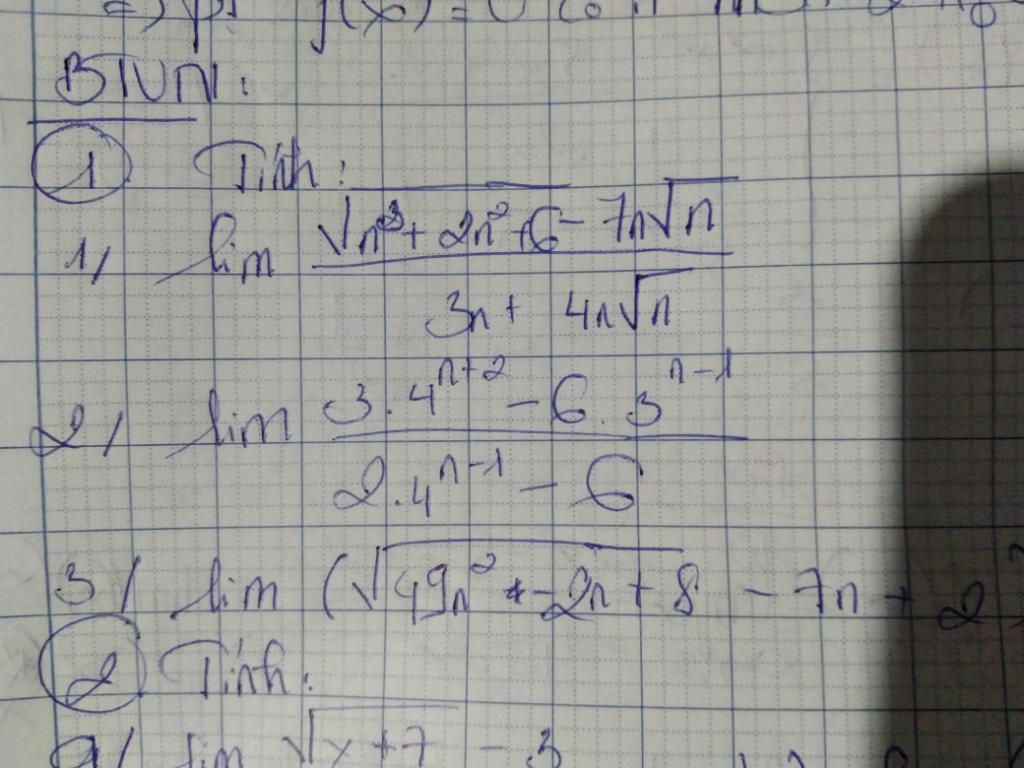 BTVN:
① Tính:
1/ lim (√(n³ + 2n² + 6) - 7n√n) / (3n + 4n√n)
2/ lim (3.4^(n+2) - 6.3^(n-1)) / (2.4^(n-1) - 6)
3/ lim (√(49n² - 2n + 8) - 7n + 2)
② Tính:
lim √(x+7) - 3